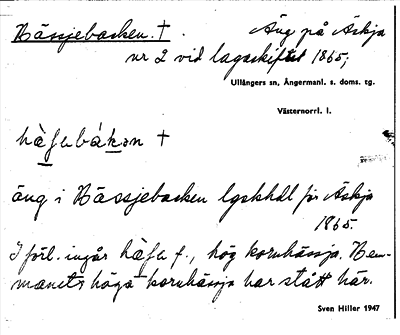 Hässjebacken. †. Äng på Äskja
nr 2 vid lagaskiftet 1865;
Ullångers sn, Ångermanl. s. doms. tg.
Västernorrl. l.
hàʃabákan †
äng i Hässjebacken lgskhdl för Äskja
1865.
I förl. ingår hàʃa f., hög kornhässja. Bem-
manets höga kornhässja har stått här.
Sven Hiller 1947